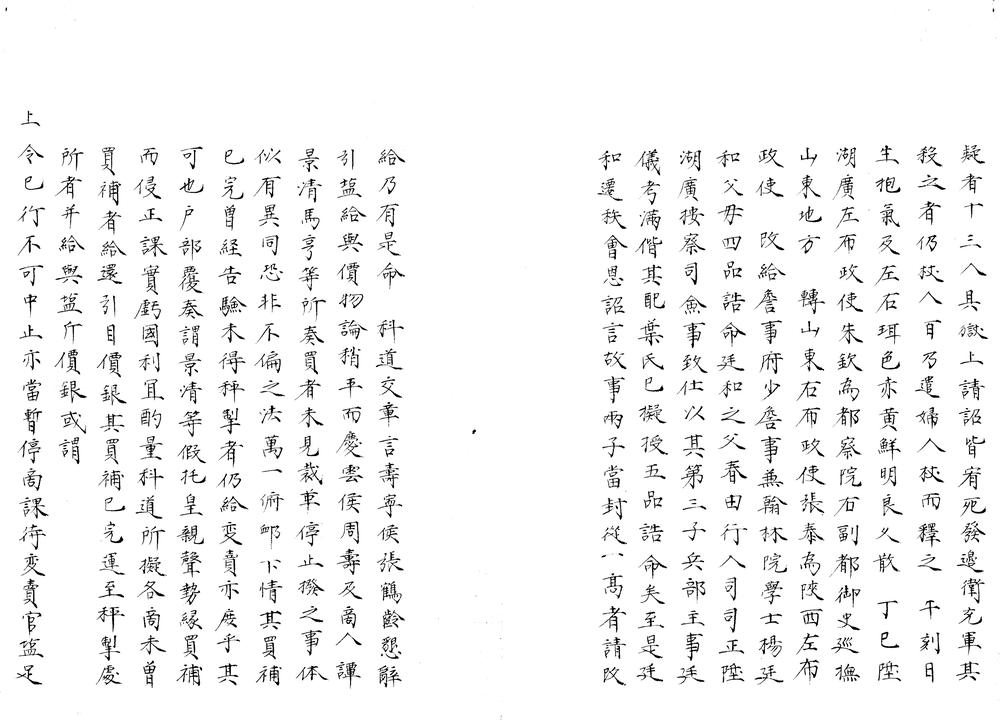 疑者十三人具獄上請詔皆宥死發邊衛充軍其
殺之者仍杖八百乃遣婦人杖而釋之　午刻日
生抱氣及左右珥色亦黄鮮明良久散　丁巳陞
湖廣左布政使朱欽為都察院右副都御史廵撫
山東地方　轉山東右布政使張泰為陝西左布
政使　改給詹事府少詹事兼翰林院學士楊廷
和父母四品誥命廷和之父春由行人司司正陞
湖廣按察司僉事致仕以其第三子兵部主事廷
儀考滿偕其配葉氏已擬授五品誥命矣至是廷
和遷秩會恩詔言故事兩子當封從一髙者請改
給乃有是命　科道交章言壽寧侯張鶴齡懇辭
引塩給與價物論稍平而慶雲侯周壽及商人譚
景清馬亨等所奏買者未見裁革停止撥之事体
似有異同恐非不偏之法萬一俯䘏下情其買補
已完曾経告驗未得秤掣者仍給变賣亦庻乎其
可也户部覆奏謂景清等假托皇親聲势縁買補
而侵正課實虧國利宜酌量科道所擬各商未曽
買補者給還引目價銀其買補已完運至秤掣處
所者并給與塩斤價銀或謂
上令已行不可中止亦當暫停商課待变賣官塩足